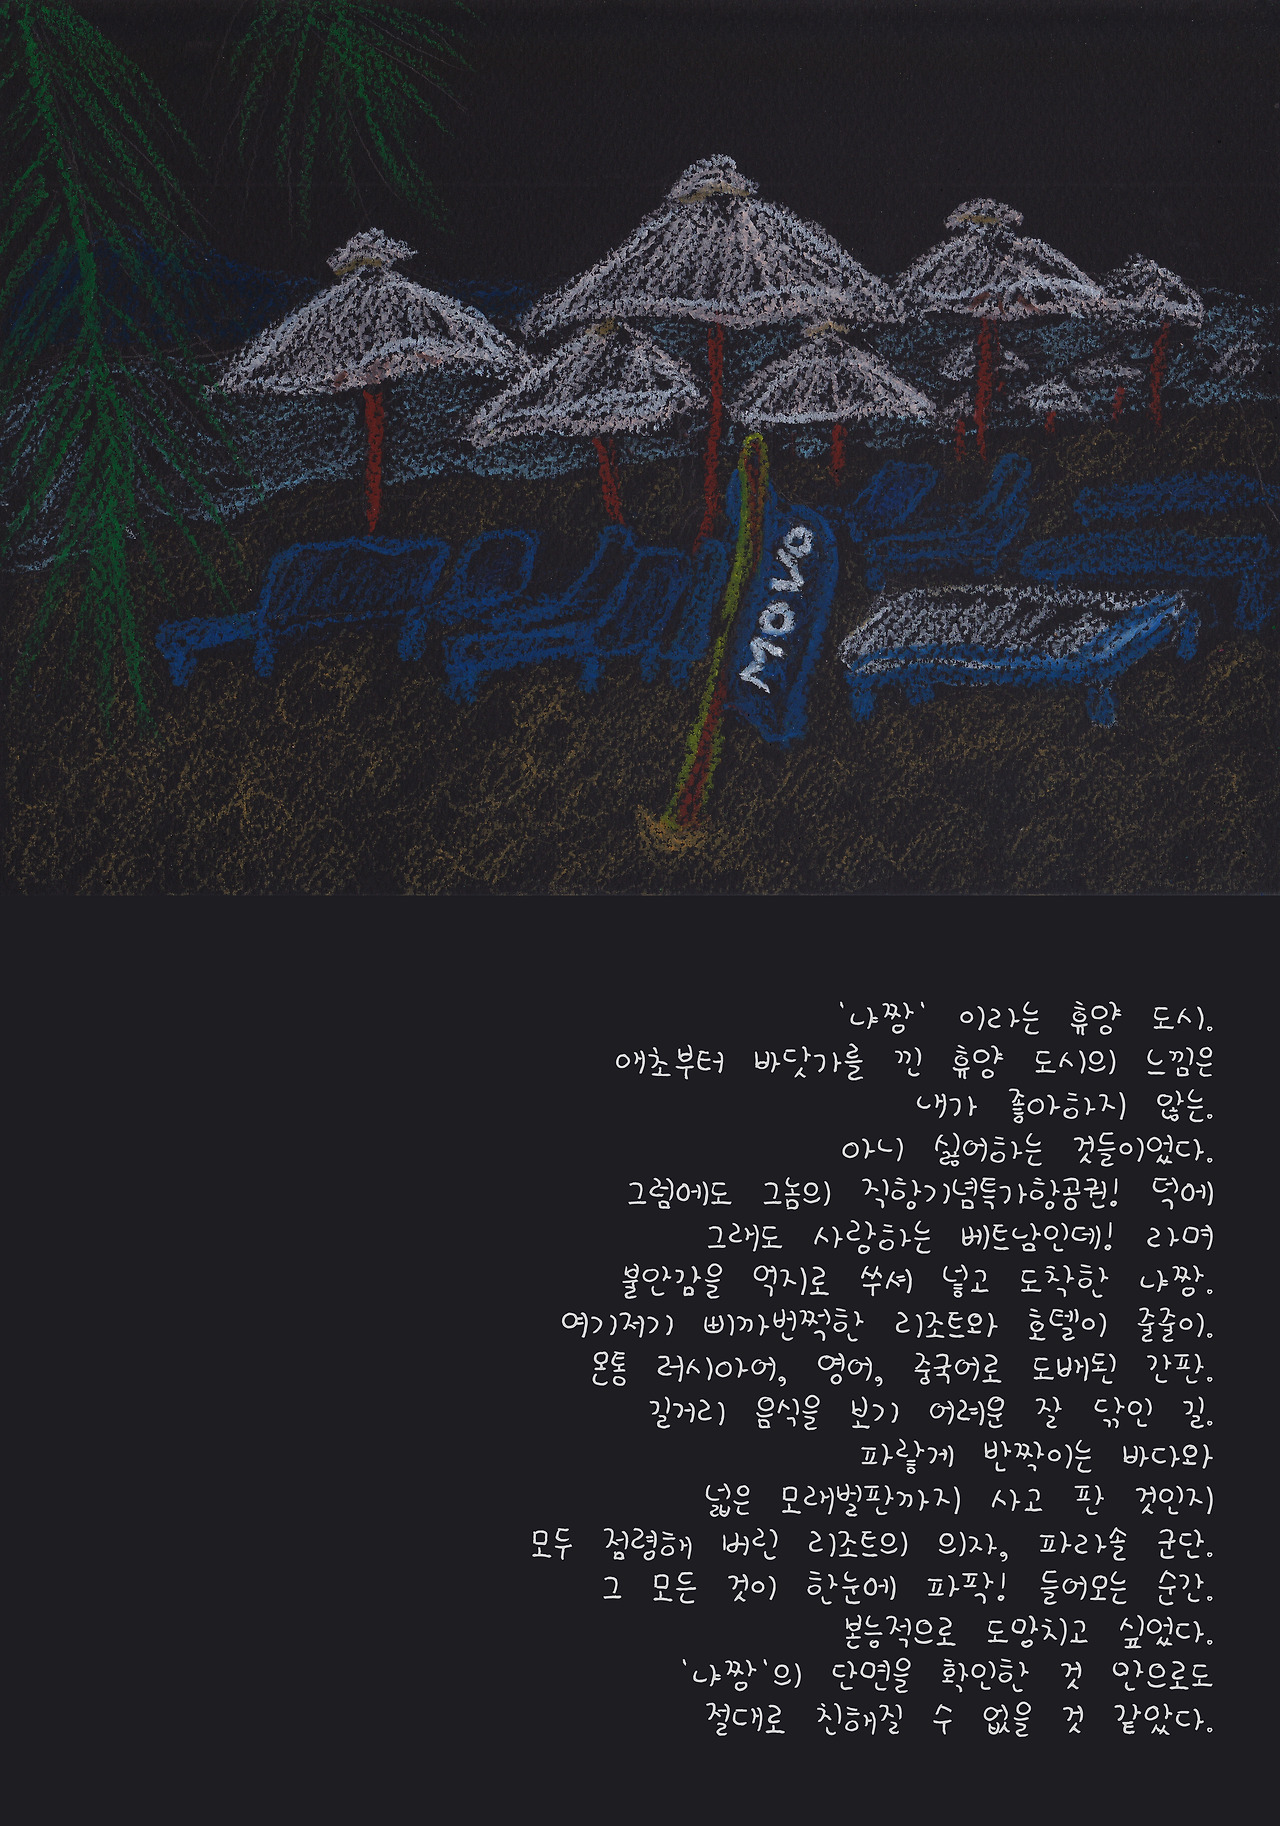 MOVO
'냐짱' 이라는 휴양 도시.
애초부터 바닷가를 낀 휴양 도시의 느낌은
내가 좋아하지 않는.
아니 싫어하는 것들이었다.
그럼에도 그놈의 직항기념특가항공권! 덕에
그래도 사랑하는 베트남인데! 라며
불안감을 억지로 쑤셔 넣고 도착한 냐짱.
여기저기 삐까번쩍한 리조트와 호텔이 줄줄이.
온통 러시아어, 영어, 중국어로 도배된 간판.
길거리 음식을 보기 어려운 잘 닦인 길.
파랗게 반짝이는 바다와
넓은 모래벌판까지 사고 판 것인지
모두 점령해 버린 리조트의 의자, 파라솔 군단.
그 모든 것이 한눈에 파팍! 들어오는 순간.
본능적으로 도망치고 싶었다.
'냐짱'의 단면을 확인한 것 만으로도
절대로 친해질 수 없을 것 같았다.